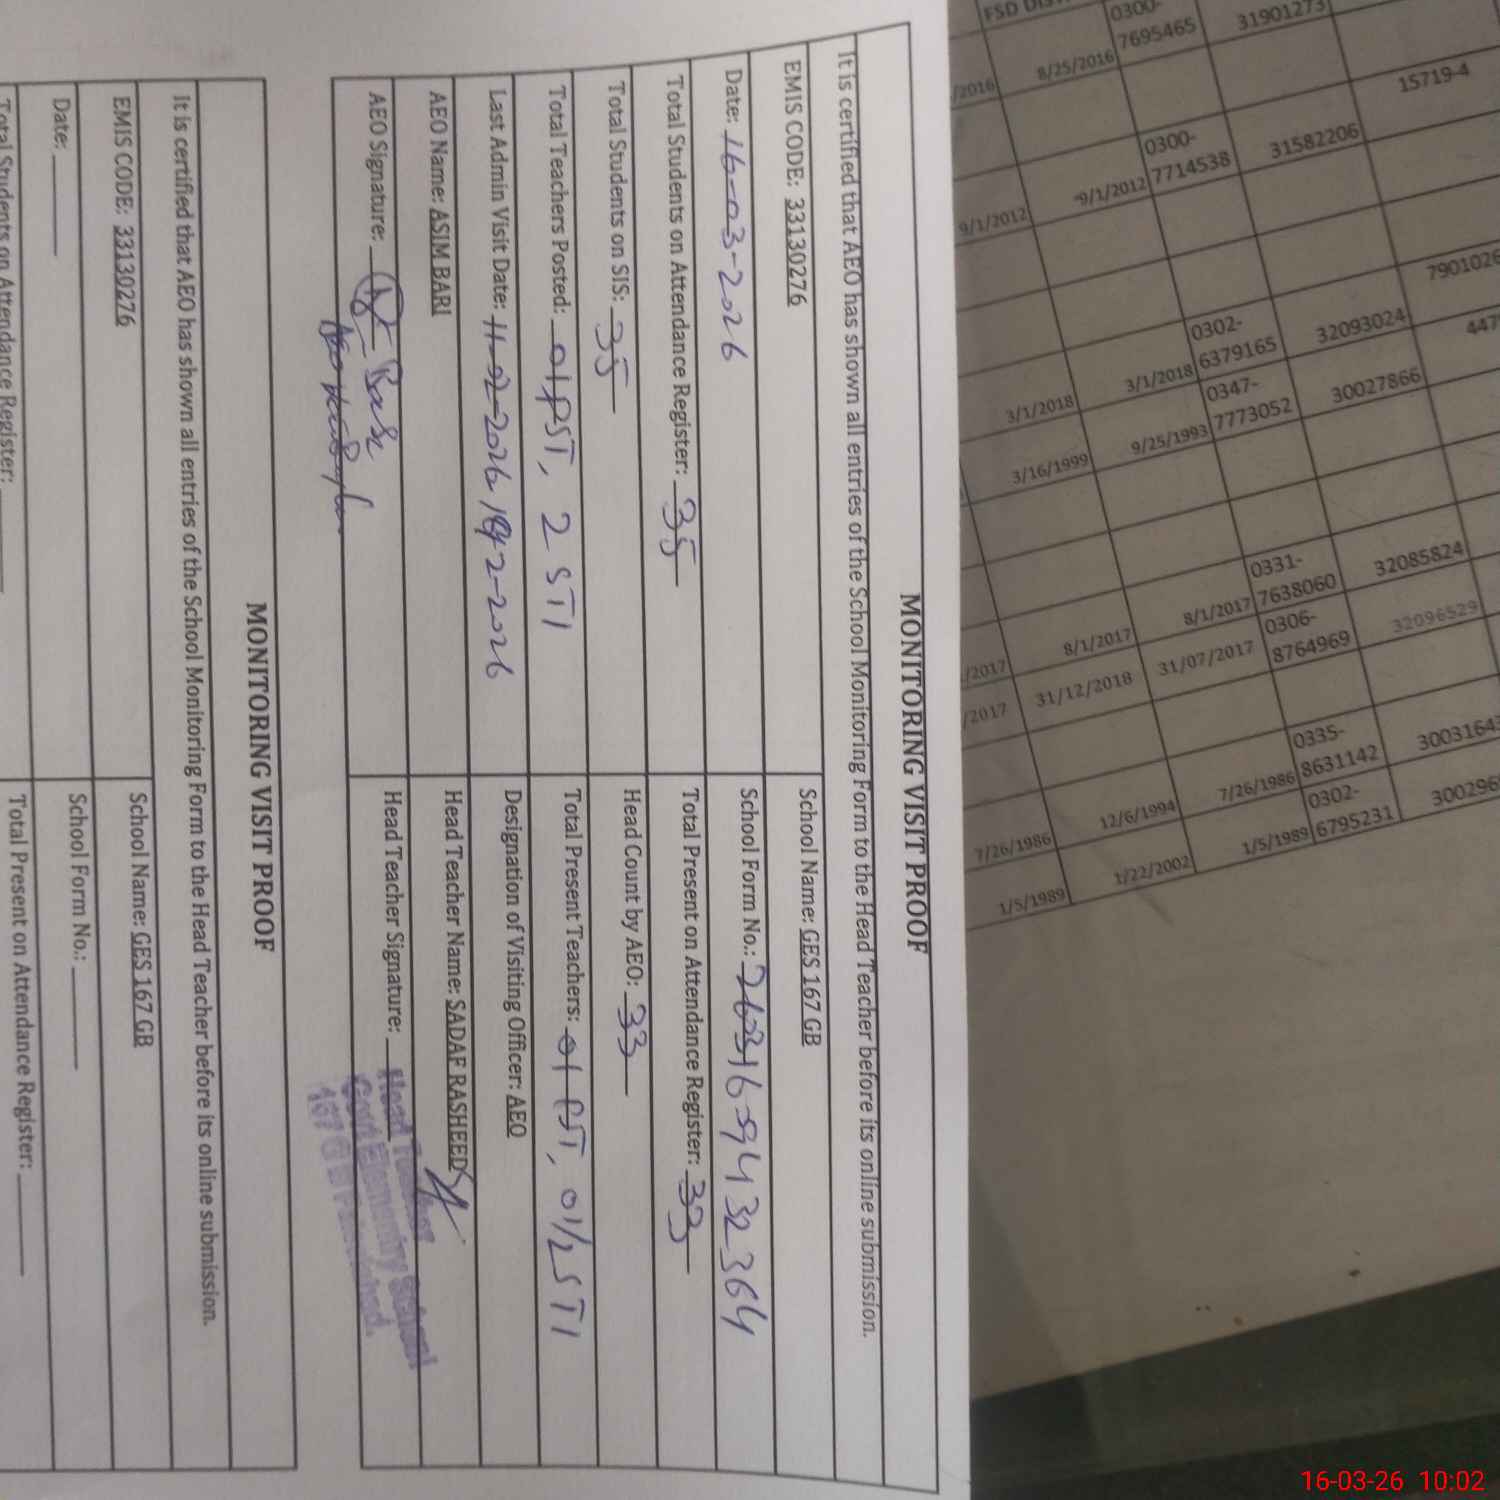 MONITORING VISIT PROOF
It is certified that AEO has shown all entries of the School Monitoring Form to the Head Teacher before its online submission.
EMIS CODE: 33130276 School Name: GES 167 GB
Date: 16-03-2026 School Form No.: 260316-9432364
Total Students on Attendance Register: 35 Total Present on Attendance Register: 33
Total Students on SIS: 35 Head Count by AEO: 33
Total Teachers Posted: 01 PST, 2 STI Total Present Teachers: 01 PST, 01/2 STI
Last Admin Visit Date: 11-02-2026 -2-2026 Designation of Visiting Officer: AEO
AEO Name: ASIM BARI Head Teacher Name: SADAF RASHEED
AEO Signature: Head Teacher Signature:
Head Teacher
Govt Elementry School
167 G B
MONITORING VISIT PROOF
It is certified that AEO has shown all entries of the School Monitoring Form to the Head Teacher before its online submission.
EMIS CODE: 33130276 School Name: GES 167 GB
Date: School Form No.:
Total Students on Attendance Register: Total Present on Attendance Register:
FSD
/2016 8/25/2016 0300-7695465 31901273
15719-4
9/1/2012 9/1/2012 0300-7714538 31582206
3/1/2018 3/1/2018 0302-6379165 32093024 7901026
3/16/1999 9/25/1993 0347-7773052 30027866 447
/2017 8/1/2017 8/1/2017 0331-7638060 32085824
/2017 31/12/2018 31/07/2017 0306-8764969 32096529
7/26/1986 12/6/1994 7/26/1986 0335-8631142 3003164
1/5/1989 1/22/2002 1/5/1989 0302-6795231 300296
16-03-26 10:02